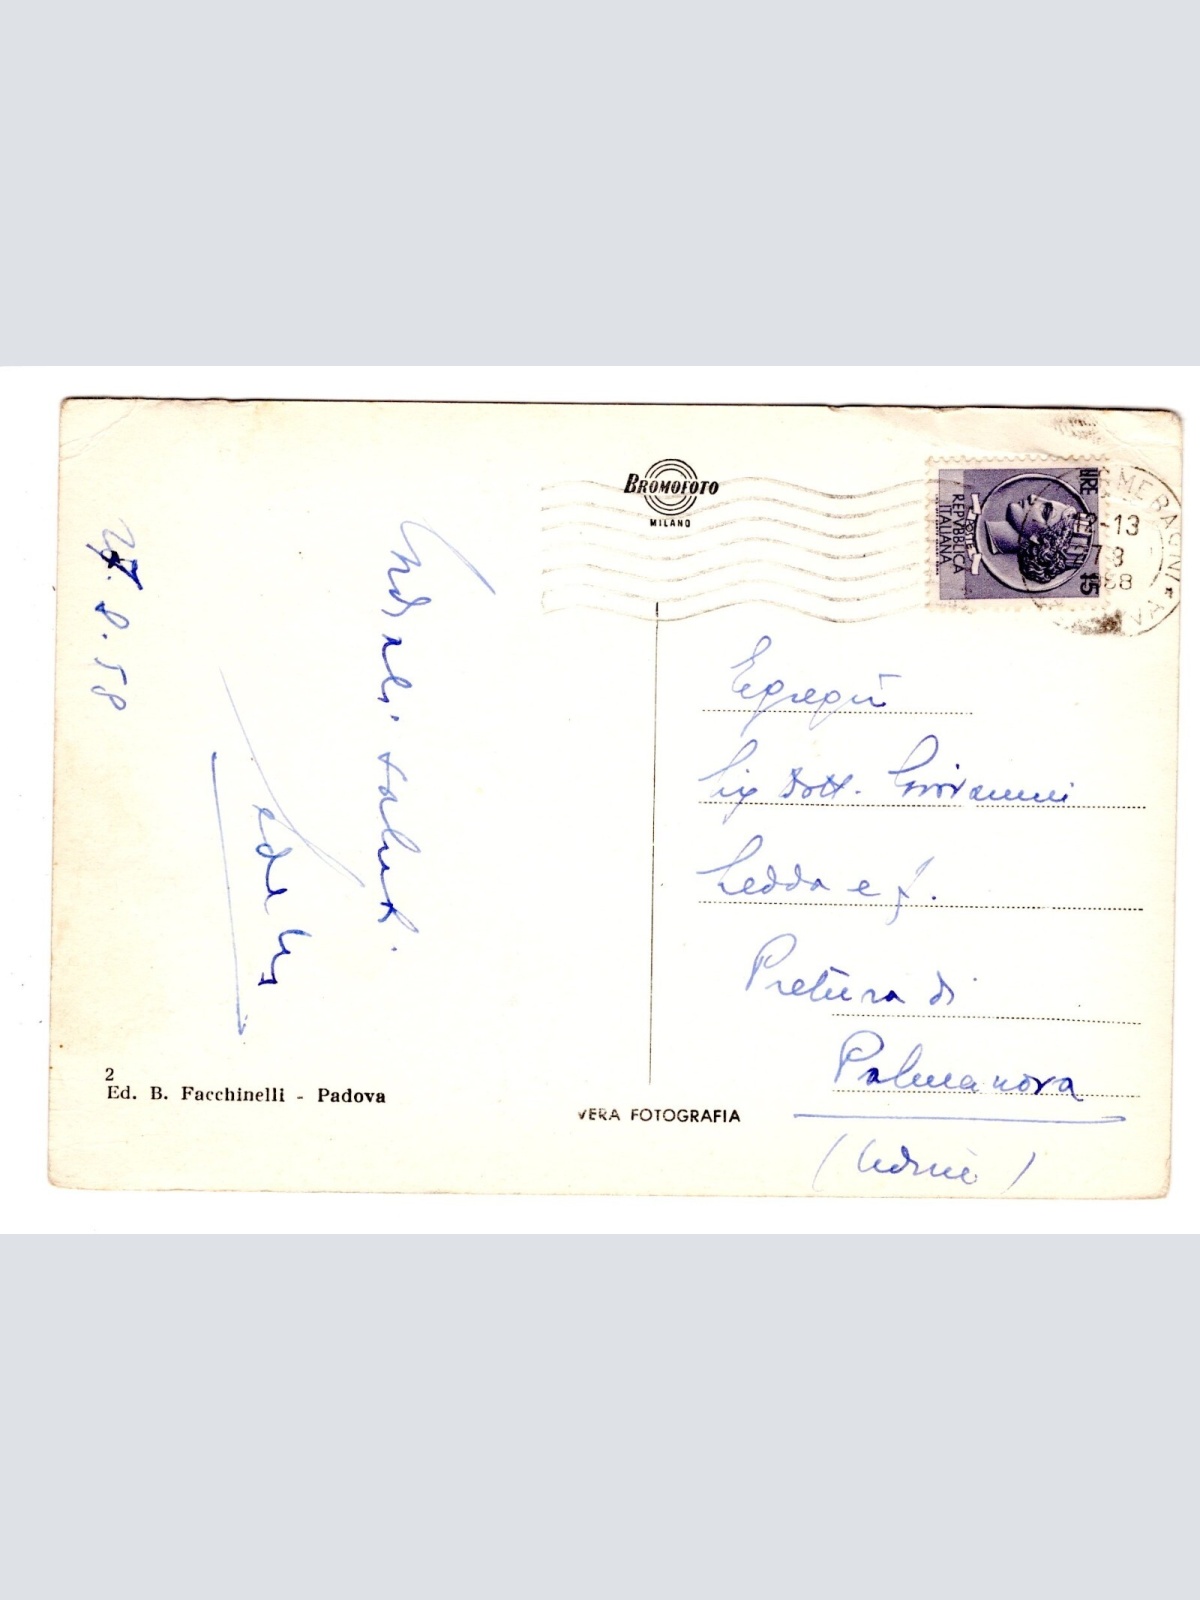 BROMOFOTO
MILANO
POSTE
REPVBBLICA
ITALIANA
LIRE 15
-13
27. 8. 58
Cordiali saluti.
Egregi
Sig Dott. Giovanni
Ledda e f.
Pretura di
Palmanova
(Udine)
2
Ed. B. Facchinelli - Padova
VERA FOTOGRAFIA